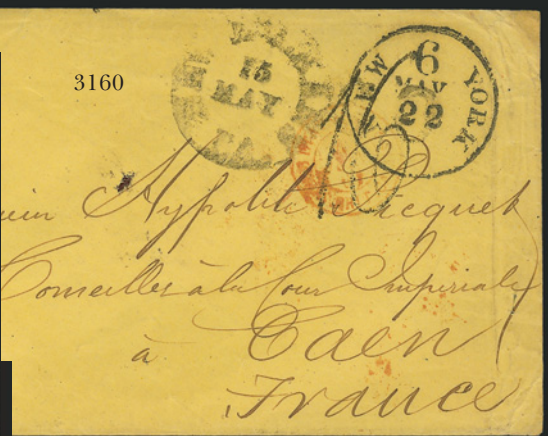 3160
15
MAY
NEW YORK
6
MAY
22
Hypolite Picquet
Conseiller à la Cour Imperiale
à Caen
France